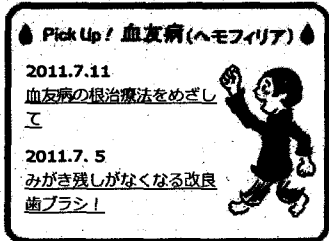 Pick Up! 血友病(ヘモフィリア)
2011.7.11
血友病の根治療法をめざし
て
2011.7. 5
みがき残しがなくなる改良
歯ブラシ!